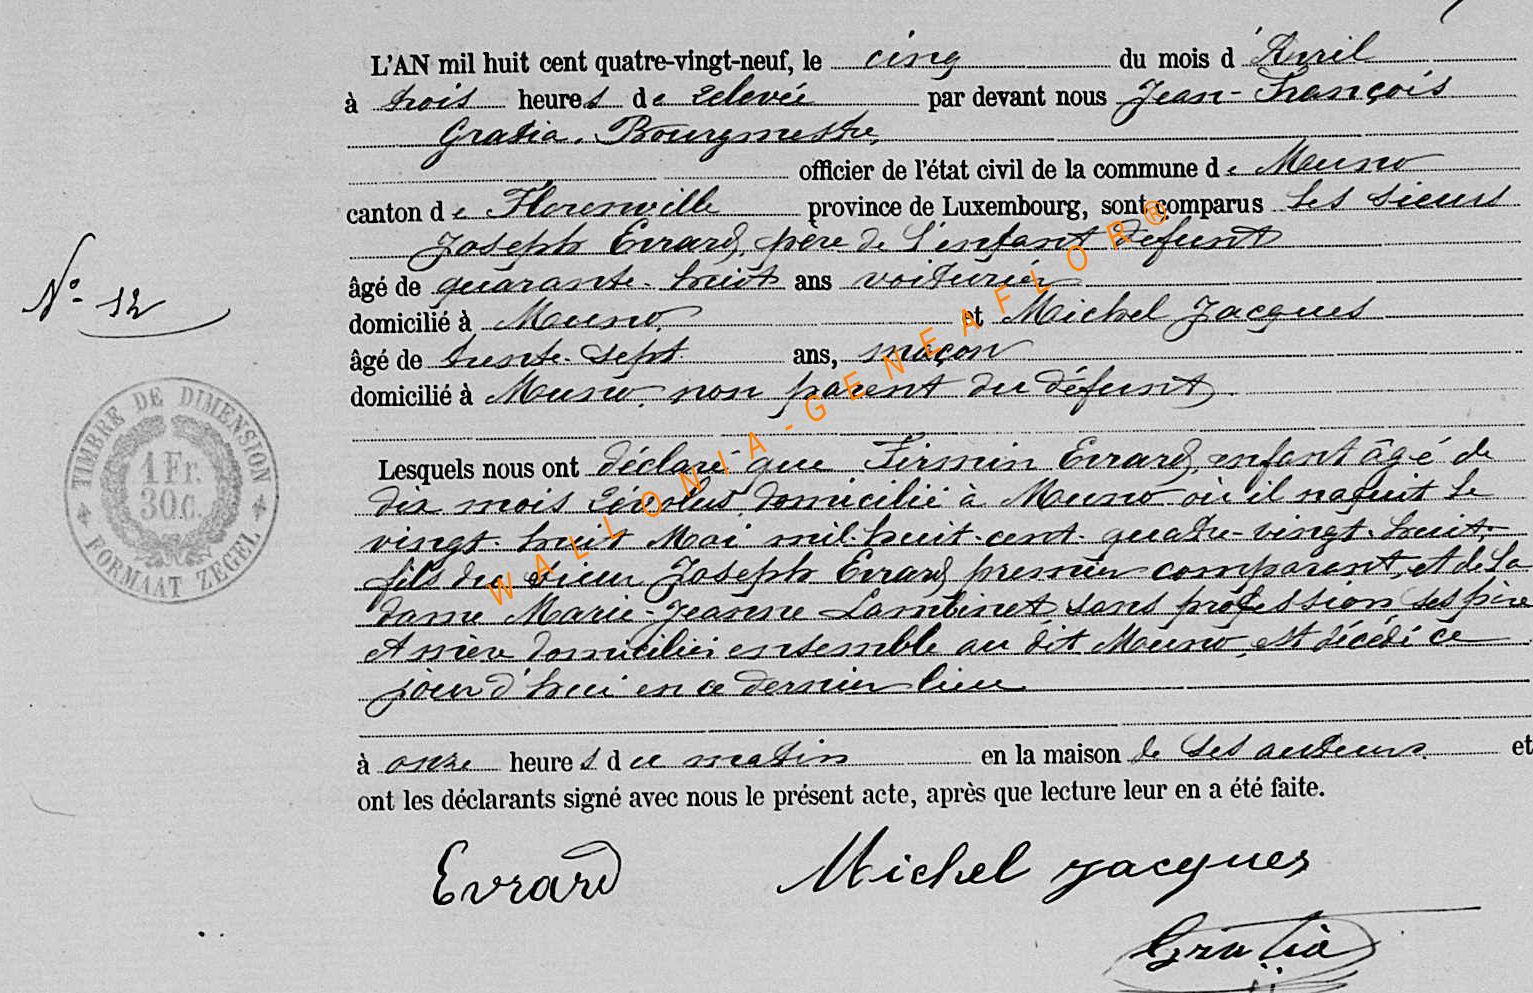 L'AN mil huit cent quatre-vingt-neuf, le cinq du mois d'Avril
à trois heures de relevée par devant nous Jean-François
Gratia, Bourgmestre,
officier de l'état civil de la commune de Muno
canton de Florenville province de Luxembourg, sont comparus les sieurs
Joseph Evrard, père de l'enfant défunt
âgé de quarante-huit ans voiturier
domicilié à Muno, et Michel Jacques
âgé de trente-sept ans, maçon
domicilié à Muno, non parent du défunt
N° 12
TIMBRE DE DIMENSION
1 Fr.
30 c.
FORMAAT ZEGEL
Lesquels nous ont déclaré que Firmin Evrard, enfant âgé de
dix mois révolus, domicilié à Muno où il naquit le
vingt-huit Mai mil-huit-cent-quatre-vingt-huit,
fils du sieur Joseph Evrard premier comparant, et de la
dame Marie-Jeanne Lambinet sans profession, ses père
et mère domiciliés ensemble au dit Muno, est décédé ce
jour d'hui en ce dernier lieu
à onze heures du matin en la maison de ses auteurs. et
ont les déclarants signé avec nous le présent acte, après que lecture leur en a été faite.
Evrard Michel Jacques
Gratia
WALLONIA-GENEAFLOR®